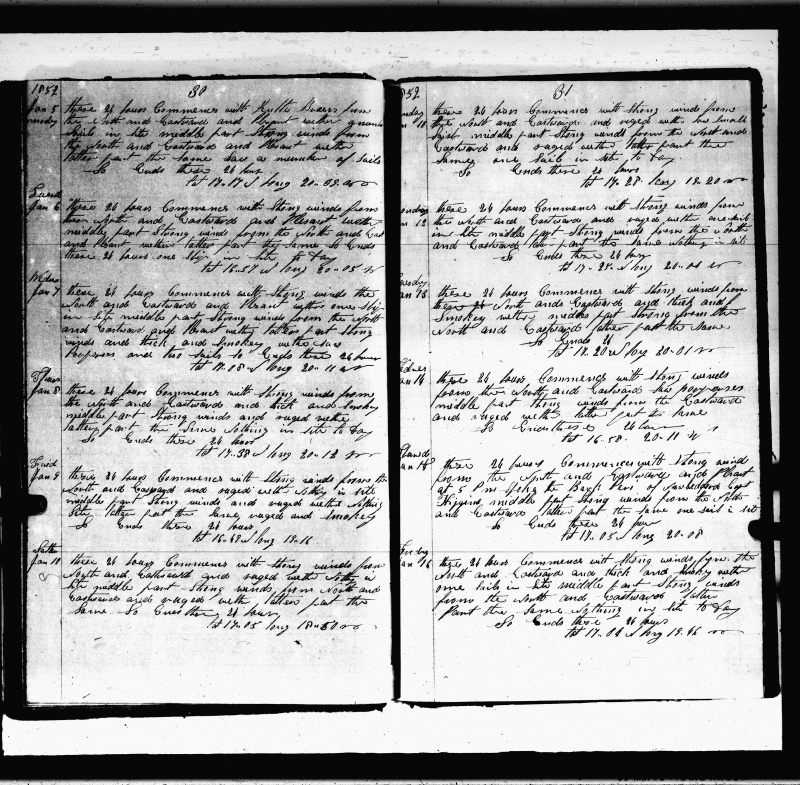 1852 30
Jan 5 these 24 hours Commences with Gentle Breezes from
Monday the North and Eastward and Pleasant wether
Sails in site middle part Strong winds from
the North and Eastward and Pleasant wether
latter part the Same Saw a number of Sails
So Ends these 24 hours
lat 17-17 S long 20-03
these 24 hours Commences with Strong winds from
Jan 6 the North and Eastward and Pleasant wether
middle part Strong winds from the North and East
and Pleasant wether latter part the Same So Ends
these 24 hours one Ship in site to Day
lat 16-57 S long 20-05 W
Jan 7 these 24 hours Commences with Strong winds the
North and Eastward and Pleasant wether one Ship
in site middle part Strong winds from the North
and Eastward and Pleasant wether latter part Strong
winds and thick and Smokey wether Saw
Porposes and two Sails So Ends these 24 hours
lat 17-08 S long 20-11
Jan 8 these 24 hours Commences with Strong winds from
the North and Eastward and thick and Smokey
middle part Strong winds and ruged wether
latter part the Same Nothing in site to Day
So Ends these 24 hours
long 20-12
Jan 9 these 24 hours Commences with Strong winds from the
North and Eastward and ruged wether Nothing in site
middle part Strong winds and ruged wether Nothing
Site latter part the Same ruged and Smokey
So Ends these 24 hours
Jan 10 these 24 hours Commences with Strong winds from
North and Eastward and ruged wether Nothing in
Site middle part Strong winds from North and
Eastward and ruged wether latter part the
Same So Ends these 24 hours
lat 17-05 long
1852 31
these 24 hours Commences with Strong winds from
the North and Eastward and ruged wether
middle part Strong winds from the North and
Eastward and ruged wether latter part the
Same one Sail in site to Day
So Ends these 24 hours
lat 17-28 long 19-20
these 24 hours Commences with Strong winds from
Jan 12 the North and Eastward and ruged wether one sail
in site middle part Strong winds from the North
and Eastward latter part the Same nothing in site
So Ends these 24 hours
long 20-01
these 24 hours Commences with Strong winds from
Jan 13 North and Eastward and thick and
Smokey wether middle part Strong from the
North and Eastward latter part the Same
So Ends 24
long 20-01
these 24 hours Commences with Strong winds
Jan 14 from the North and Eastward Saw porposes
middle part Strong winds from the Eastward
and ruged wether latter part the Same
So Ends these 24 hours
lat 16-58 20-11 W
these 24 hours Commences with Strong wind
from the North and Eastward and Pleasant
at 5 Pm Spoke the Bark of New Bedford Capt
Higgins middle part Strong winds from the North
and Eastward latter part the Same one Sail in Site
So Ends these 24 hours
long 20-08
these 24 hours Commences with Strong winds from the
Jan 16 North and Eastward and thick and Smokey wether
one Sail in Site middle part Strong winds
from the North and Eastward latter
Part the Same Nothing in site to Day
So Ends these 24 hours